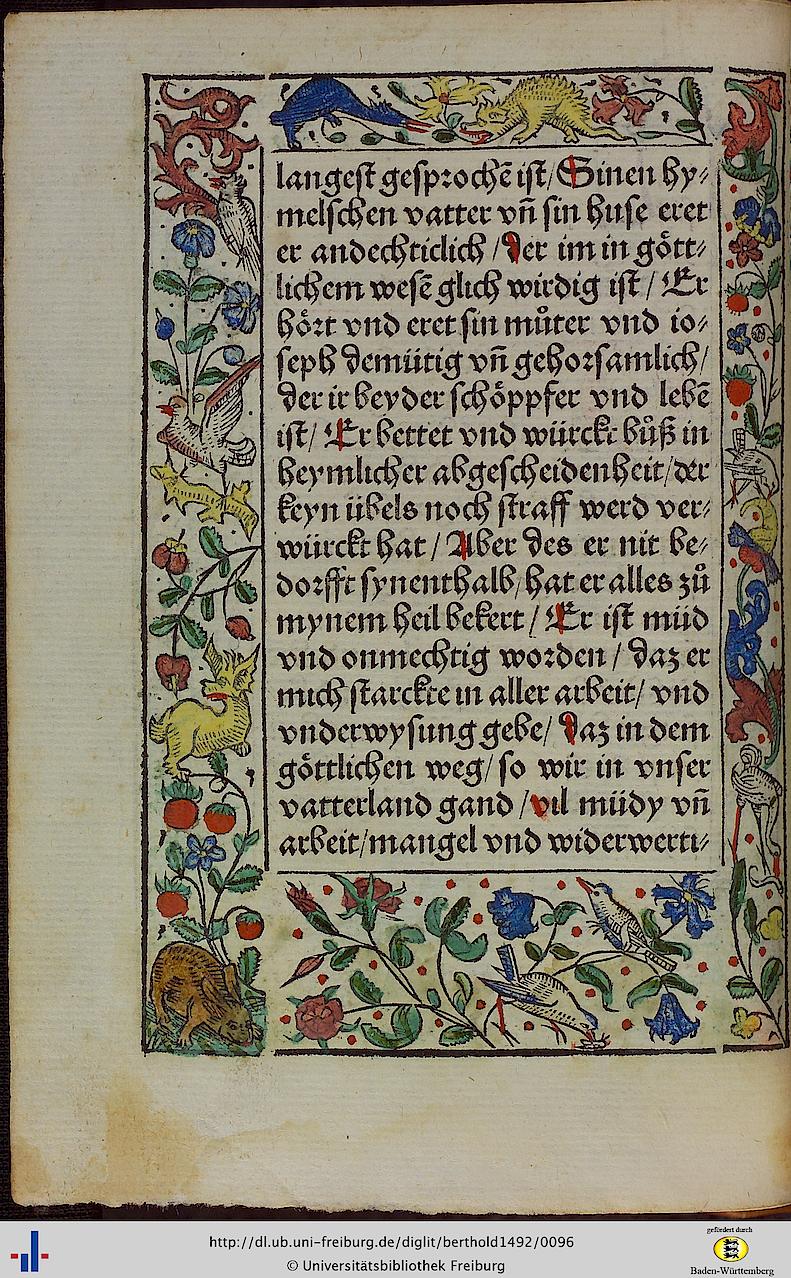 langest gesprochē ist/ Sinen hy⸗
melschen vatter vn̄ sin huse eret
er andechticlich / der im in gött⸗
lichem wesē glich wirdig ist / Er
hört vnd eret sin mu̇ter vnd io⸗
seph demütig vn̄ gehorsamlich/
der ir beyder schöppfer vnd lebē
ist/ Er bettet vnd würckt bůß in
heymlicher abgescheidenheit/der
keyn übels noch straff werd ver⸗
würckt hat / Aber des er nit be⸗
dorfft synenthalb/hat er alles zů
mynem heil bekert / Er ist müd
vnd onmechtig worden / daz er
mich starckte in aller arbeit/ vnd
vnderwysung gebe/ daz in dem
göttlichen weg/ so wir in vnser
vatterland gand / vil müdy vn̄
arbeit/mangel vnd widerwerti⸗
http://dl.ub.uni-freiburg.de/diglit/berthold1492/0096
© Universitätsbibliothek Freiburg
gefördert durch
Baden-Württemberg